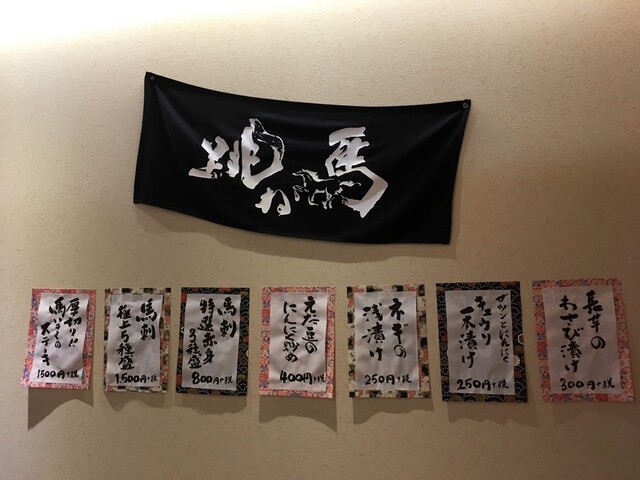 跳ね馬
厚切り!!
馬ヒレの
ステーキ
1500円+税
馬刺
極上5種盛
1,500円+税
馬刺
特選赤身
3種盛
800円+税
えだ豆の
にんにく炒め
400円+税
ネギの
浅漬け
250円+税
ガツンとにんにく
キュウリ
一本漬け
250円+税
長芋の
わさび漬け
300円+税